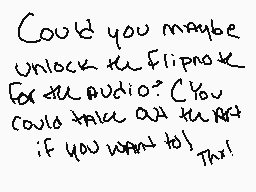 Could you maybe
unlock the flipnote
for the audio? (You
could take out the Art
if you want to!
Thx!